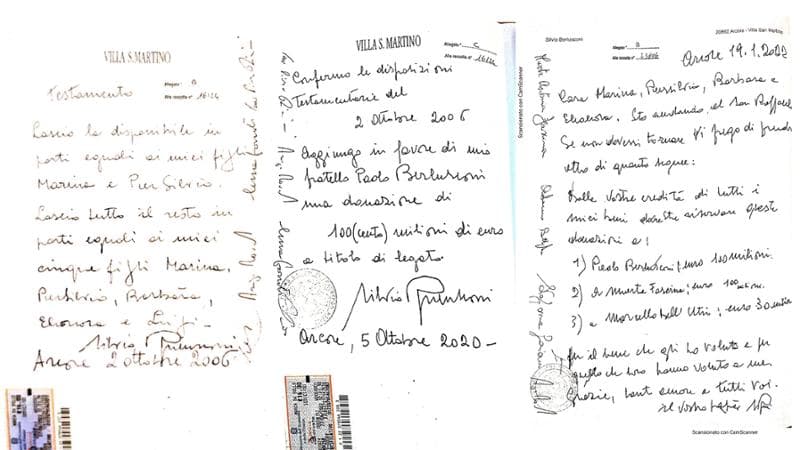 VILLA S. MARTINO
Allegato " B
Alla raccolta n° 16124
Testamento
Lascio la disponibile in
parti eguali ai miei figli
Marina e Pier Silvio.
Lascio tutto il resto in
parti eguali ai miei
cinque figli Marina,
Piersilvio, Barbara,
Eleonora e Luigi -
Silvio Berlusconi
Arcore 2 ottobre 2006
VILLA S. MARTINO
Allegato " C
Alla raccolta n° 16124
Confermo le disposizioni
Testamentarie del
2 Ottobre 2006
Aggiungo in favore di mio
fratello Paolo Berlusconi
una donazione di
100 (cento) milioni di euro
a titolo di legato
Silvio Berlusconi
Arcore, 5 Ottobre 2020 -
Scansionato con CamScanner
Silvio Berlusconi
20862 Arcore - Villa San Martino
Allegato " B
Alla raccolta n°
Arcore 19.1.2022
Cara Marina, Piersilvio, Barbara e
Eleonora, Sto andando al San Raffaele
Se non dovessi tornare Vi prego di prendere
atto di quanto segue:
Dalle vostre eredità di tutti i
miei beni dovreste riservare queste
donazioni a:
1) Paolo Berlusconi; euro 100 milioni.
2) a Marta Fascina; euro 100
3) a Marcello Dell'Utri; euro 30
per il bene che gli ho voluto e per
quello che loro hanno voluto a me.
Grazie, tanto amore a tutti voi.
il vostro papà
Scansionato con CamScanner